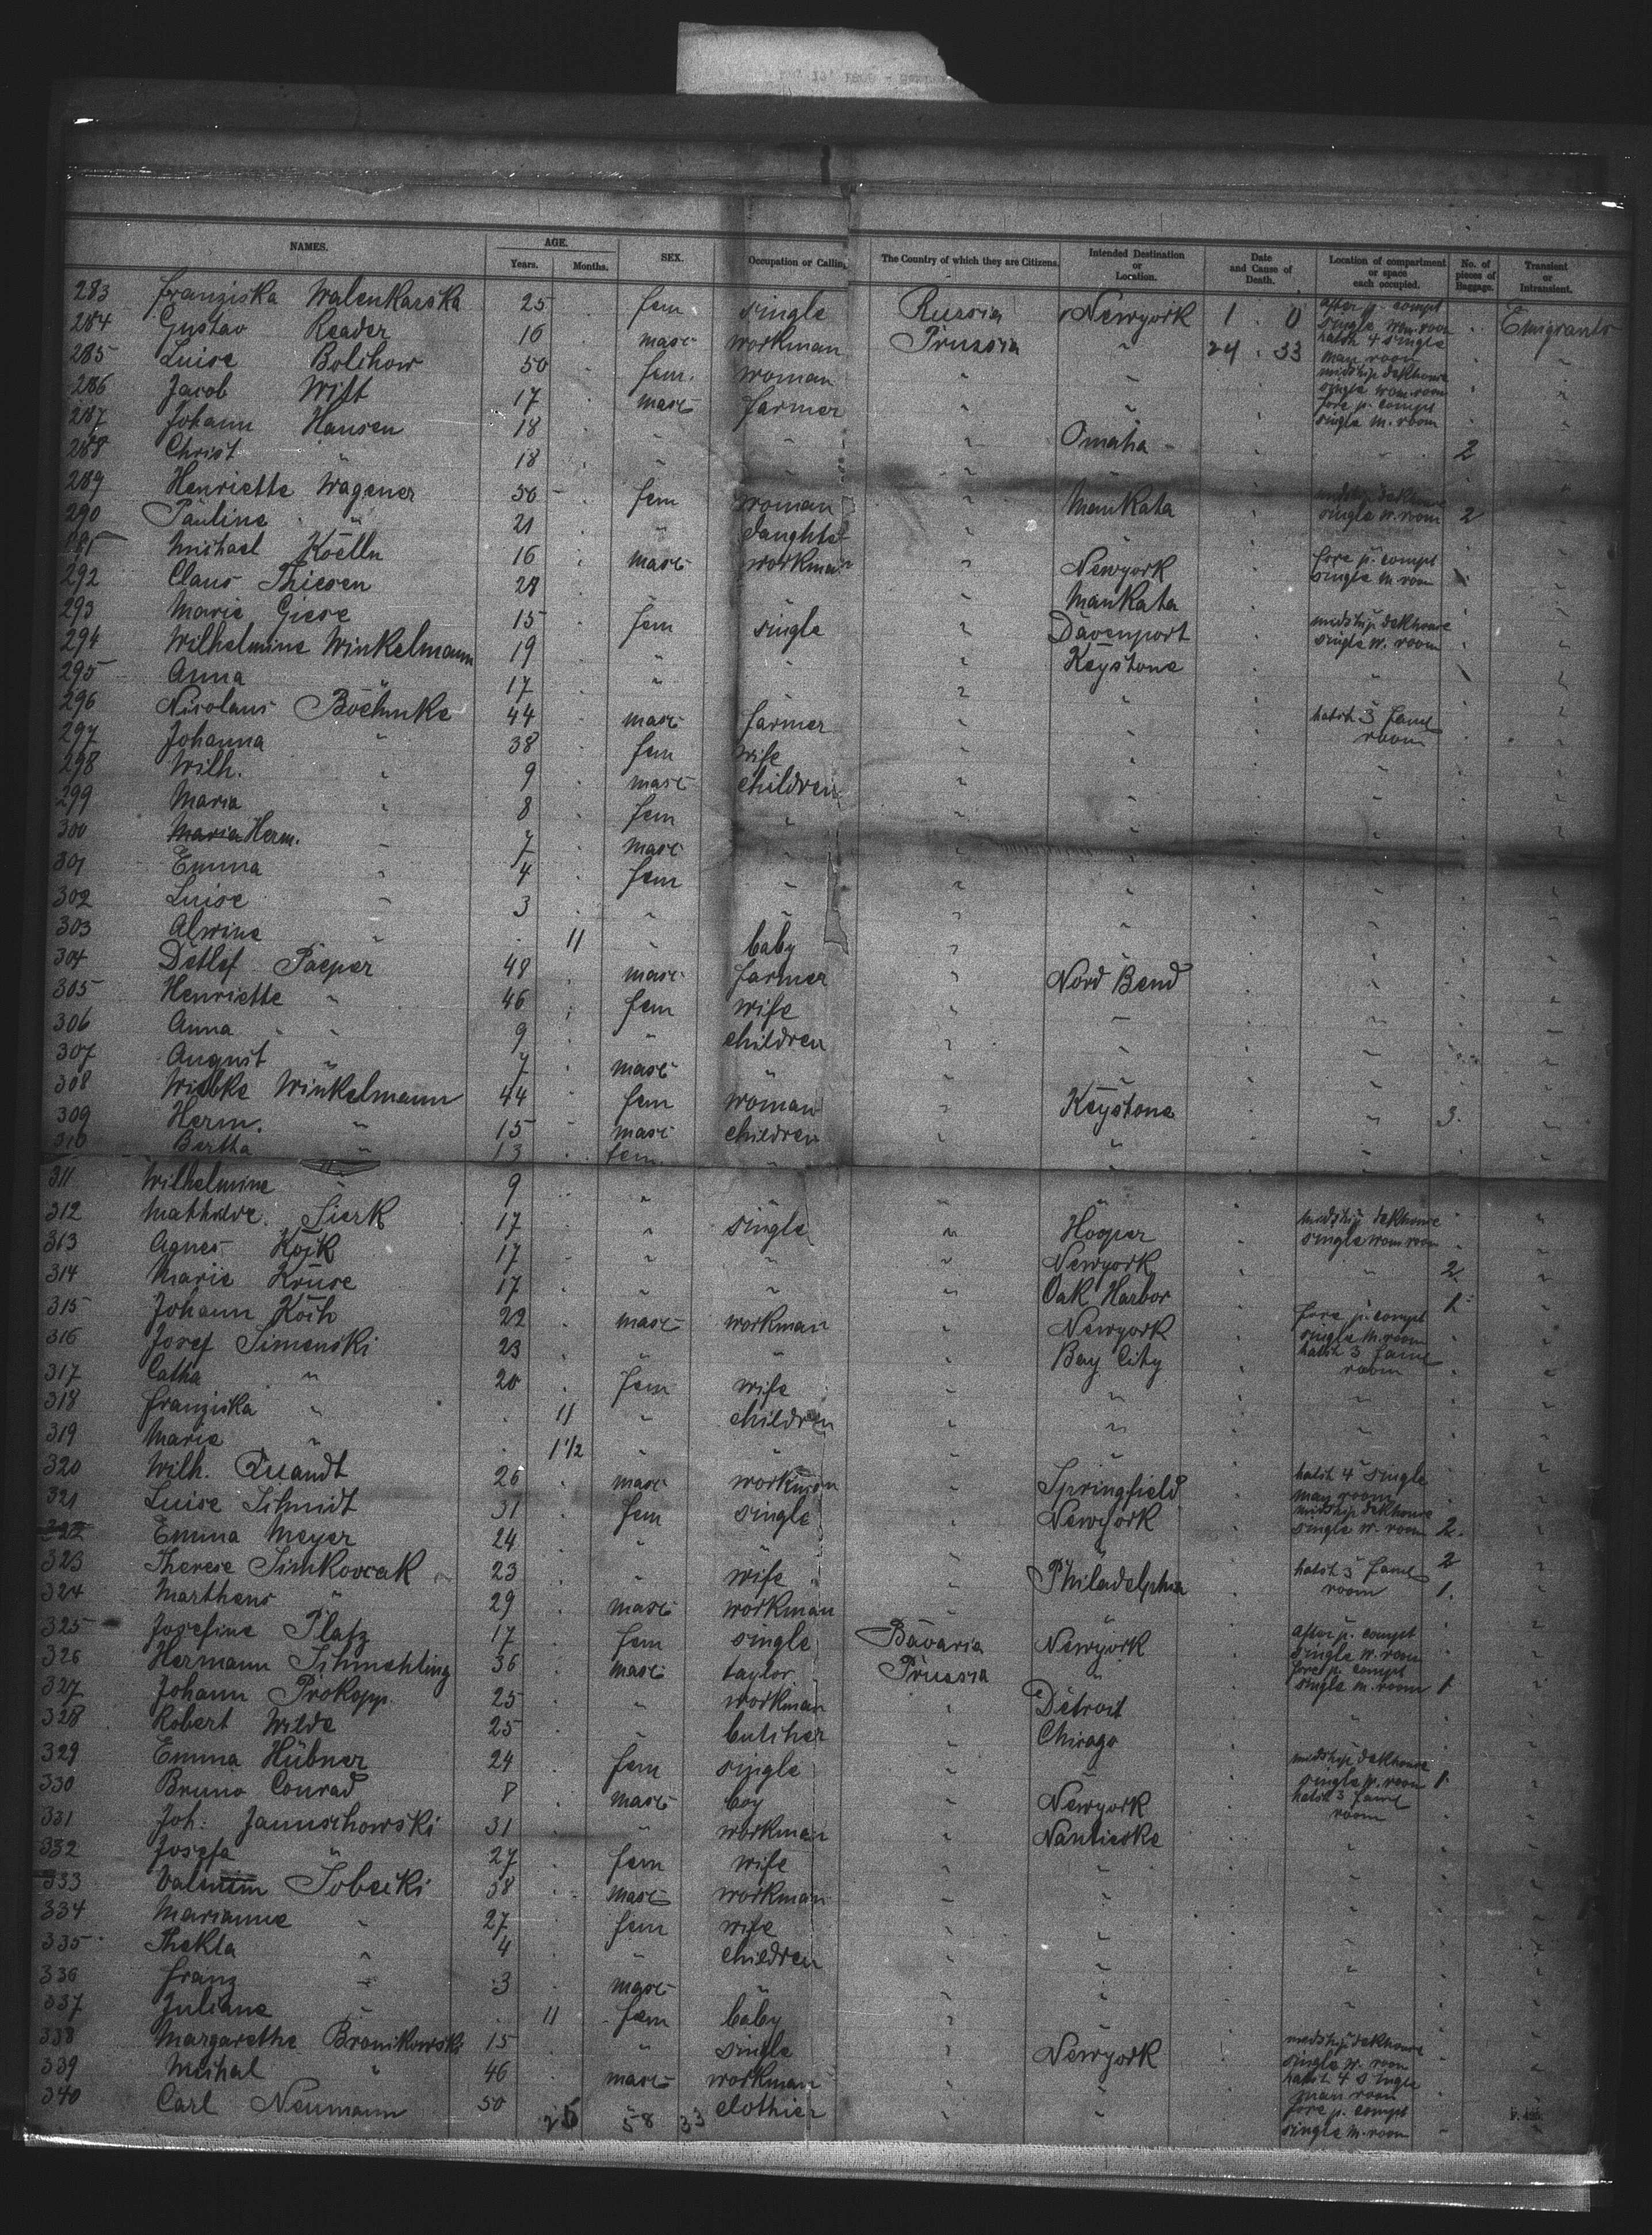 NAMES. AGE. Years. Months. SEX. Occupation or Calling. The Country of which they are Citizens. Intended Destination or Location. Date and Cause of Death. Location of compartment or space each occupied. No. of pieces of Baggage. Transient or Intransient.
283 Franziska Walenkarska 25 fem single Russia Newyork 1 . 0 after p. compt single wom. room Emigrants
284 Gustav Reader 16 masc workman Prussia " 24 . 33 hatch 4 single man room "
285 Luise Bolchow 50 fem. woman " " midship dekhouse single wom. room "
286 Jacob Witt 17 masc farmer " " fore p. compt single m. room "
287 Johann Hansen 18 " " " Omaha "
288 Christ " 18 " " " " 2 "
289 Henriette Wagener 50 fem woman " Mankata midship dekhouse single w. room 2 "
290 Pauline " 21 " daughter " " "
291 Michael Koelln 16 masc workman " Newyork fore p. compt single m. room "
292 Claus Thiesen 21 " " " Mankata "
293 Marie Giese 15 fem single " Davenport midship dekhouse single w. room "
294 Wilhelmine Winkelmann 19 " " " Keystone "
295 Anna " 17 " " " " " "
296 Nicolaus Boehmke 44 masc farmer " " hatch 3 faml room "
297 Johanna " 38 fem wife " " "
298 Wilh. " 9 masc children " " " "
299 Maria " 8 fem " " " " "
300 Herm. " 7 masc " " " " "
301 Emma " 4 fem " " " " "
302 Luise " 3 " " " " " "
303 Alwine " 11 " baby " " " "
304 Detlef Paeper 48 masc farmer " Nord Bend " "
305 Henriette " 46 fem wife " " " "
306 Anna " 9 " children " " " "
307 August " 7 masc " " " " "
308 Wiebke Winkelmann 44 fem woman " Keystone " 3. "
309 Herm. " 15 masc children " " " "
310 Bertha " 13 fem. " " " " "
311 Wilhelmine " 9 " " " " "
312 Mathilde Sierk 17 " single " Hooper midship dekhouse single wom room "
313 Agnes Kojk 17 " " " Newyork " 2. "
314 Marie Kruse 17 " " " Oak Harbor 1. "
315 Johann Koch 22 masc workman " Newyork fore p. compt single m. room "
316 Josef Simenski 23 " " " Bay City hatch 3 faml room "
317 Catha " 20 fem wife " " "
318 Franziska " 11 " children " " " "
319 Marie " 1 1/2 " " " " " "
320 Wilh. Quandt 26 masc workman " Springfield hatch 4 single man room "
321 Luise Schmidt 31 fem single " Newyork midship dekhouse single w. room 2. "
322 Emma Meyer 24 " " " " 2 "
323 Therese Simkovcak 23 " wife " Philadelphia hatch 3 faml room 1. "
324 Marthens " 29 masc workman " "
325 Josefine Platz 17 fem single Bavaria Newyork after p. compt single w. room "
326 Hermann Schmehling 36 masc taylor Prussia " fore p. compt single m. room 1 "
327 Johann Prokopp. 25 " workman " Detroit " "
328 Robert Wilde 25 " butcher " Chicago "
329 Emma Hübner 24 fem single " " midship dekhouse single w. room 1. "
330 Bruno Conrad 8 masc boy " Newyork hatch 3 faml room "
331 Joh. Januschowski 31 " workman " Nanticoke "
332 Josefa " 27 fem wife " " " "
333 Valentin Sobecki 38 masc workman " " " "
334 Marianne " 27 fem wife " " " "
335 Thekla " 4 " children " " " "
336 Franz " 3 masc " " " " "
337 Juliane " 11 fem baby " " " "
338 Margarethe Bronikowski 15 " single " Newyork midship dekhouse single w. room "
339 Michal " 46 masc workman " " hatch 4 single man room "
340 Carl Neumann 50 " clothier " " fore p. compt single m. room "
25 58 33